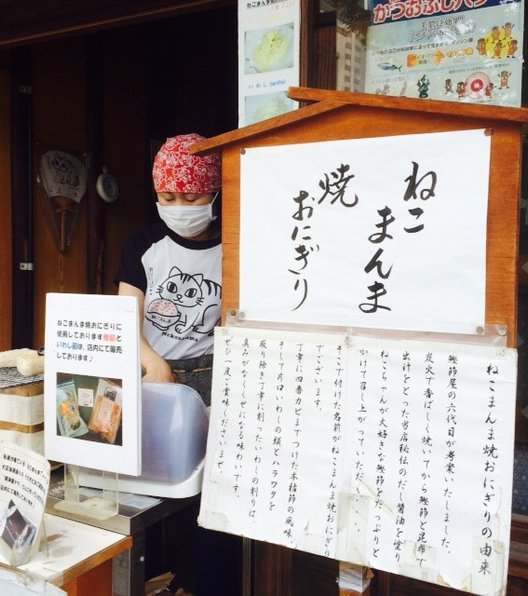 ねこ
まんま
焼
おにぎり
ねこまんま焼おにぎりの由来
鰹節屋の六代目が考案いたしました。
炭火で香ばしく焼いてから鰹節と昆布で
出汁をとった当店秘伝のだし醤油を塗り、
ねこちゃんが大好きな鰹節をたっぷりと
かけて召し上がっていただく、、、
そこで付けた名前がねこまんま焼おにぎり
でございます。
丁寧に四番カビまでつけた本枯節の風味、
そして片口いわしの頭とハラワタを
取り除き丁寧に削ったいわしの削りは、
臭みがなくくせになる味わいです。
ぜひ一度ご賞味くださいませ。
ねこまんま焼おにぎりに
使用しております鰹節と
いわし節は、店内にて販売
しております♪
かつおぶし
いわし
Nekomanma